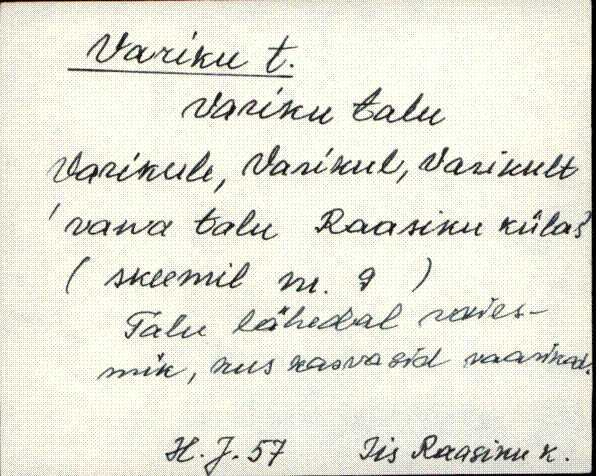 Variku t.
Variku talu
Varikule, Varikul, Varikult
'vana talu Raasiku külas
( skeemil nr. 9 )
Talu lähedal raies-
mik, kus kasvasid vaarikad.
H. J. 57 Iis Raasiku k.